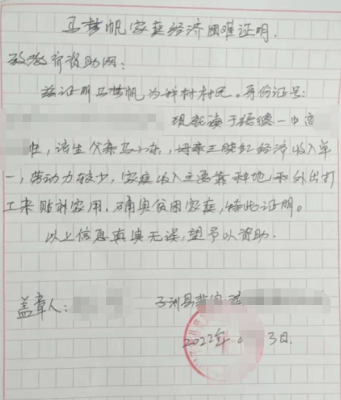 马梦帆家庭经济困难证明
致教育资助网:
兹证明马梦帆为 村村民。身份证号:
现就读于绥德一中高
该生父亲马小东, 母亲王 红经济收入单
一,劳动力较少,家庭收入主要靠种地和外出打
工来贴补家用。确实贫困家庭,特此证明。
以上信息真实无误,望予以资助。
盖章人:
子洲县
2022年 3日